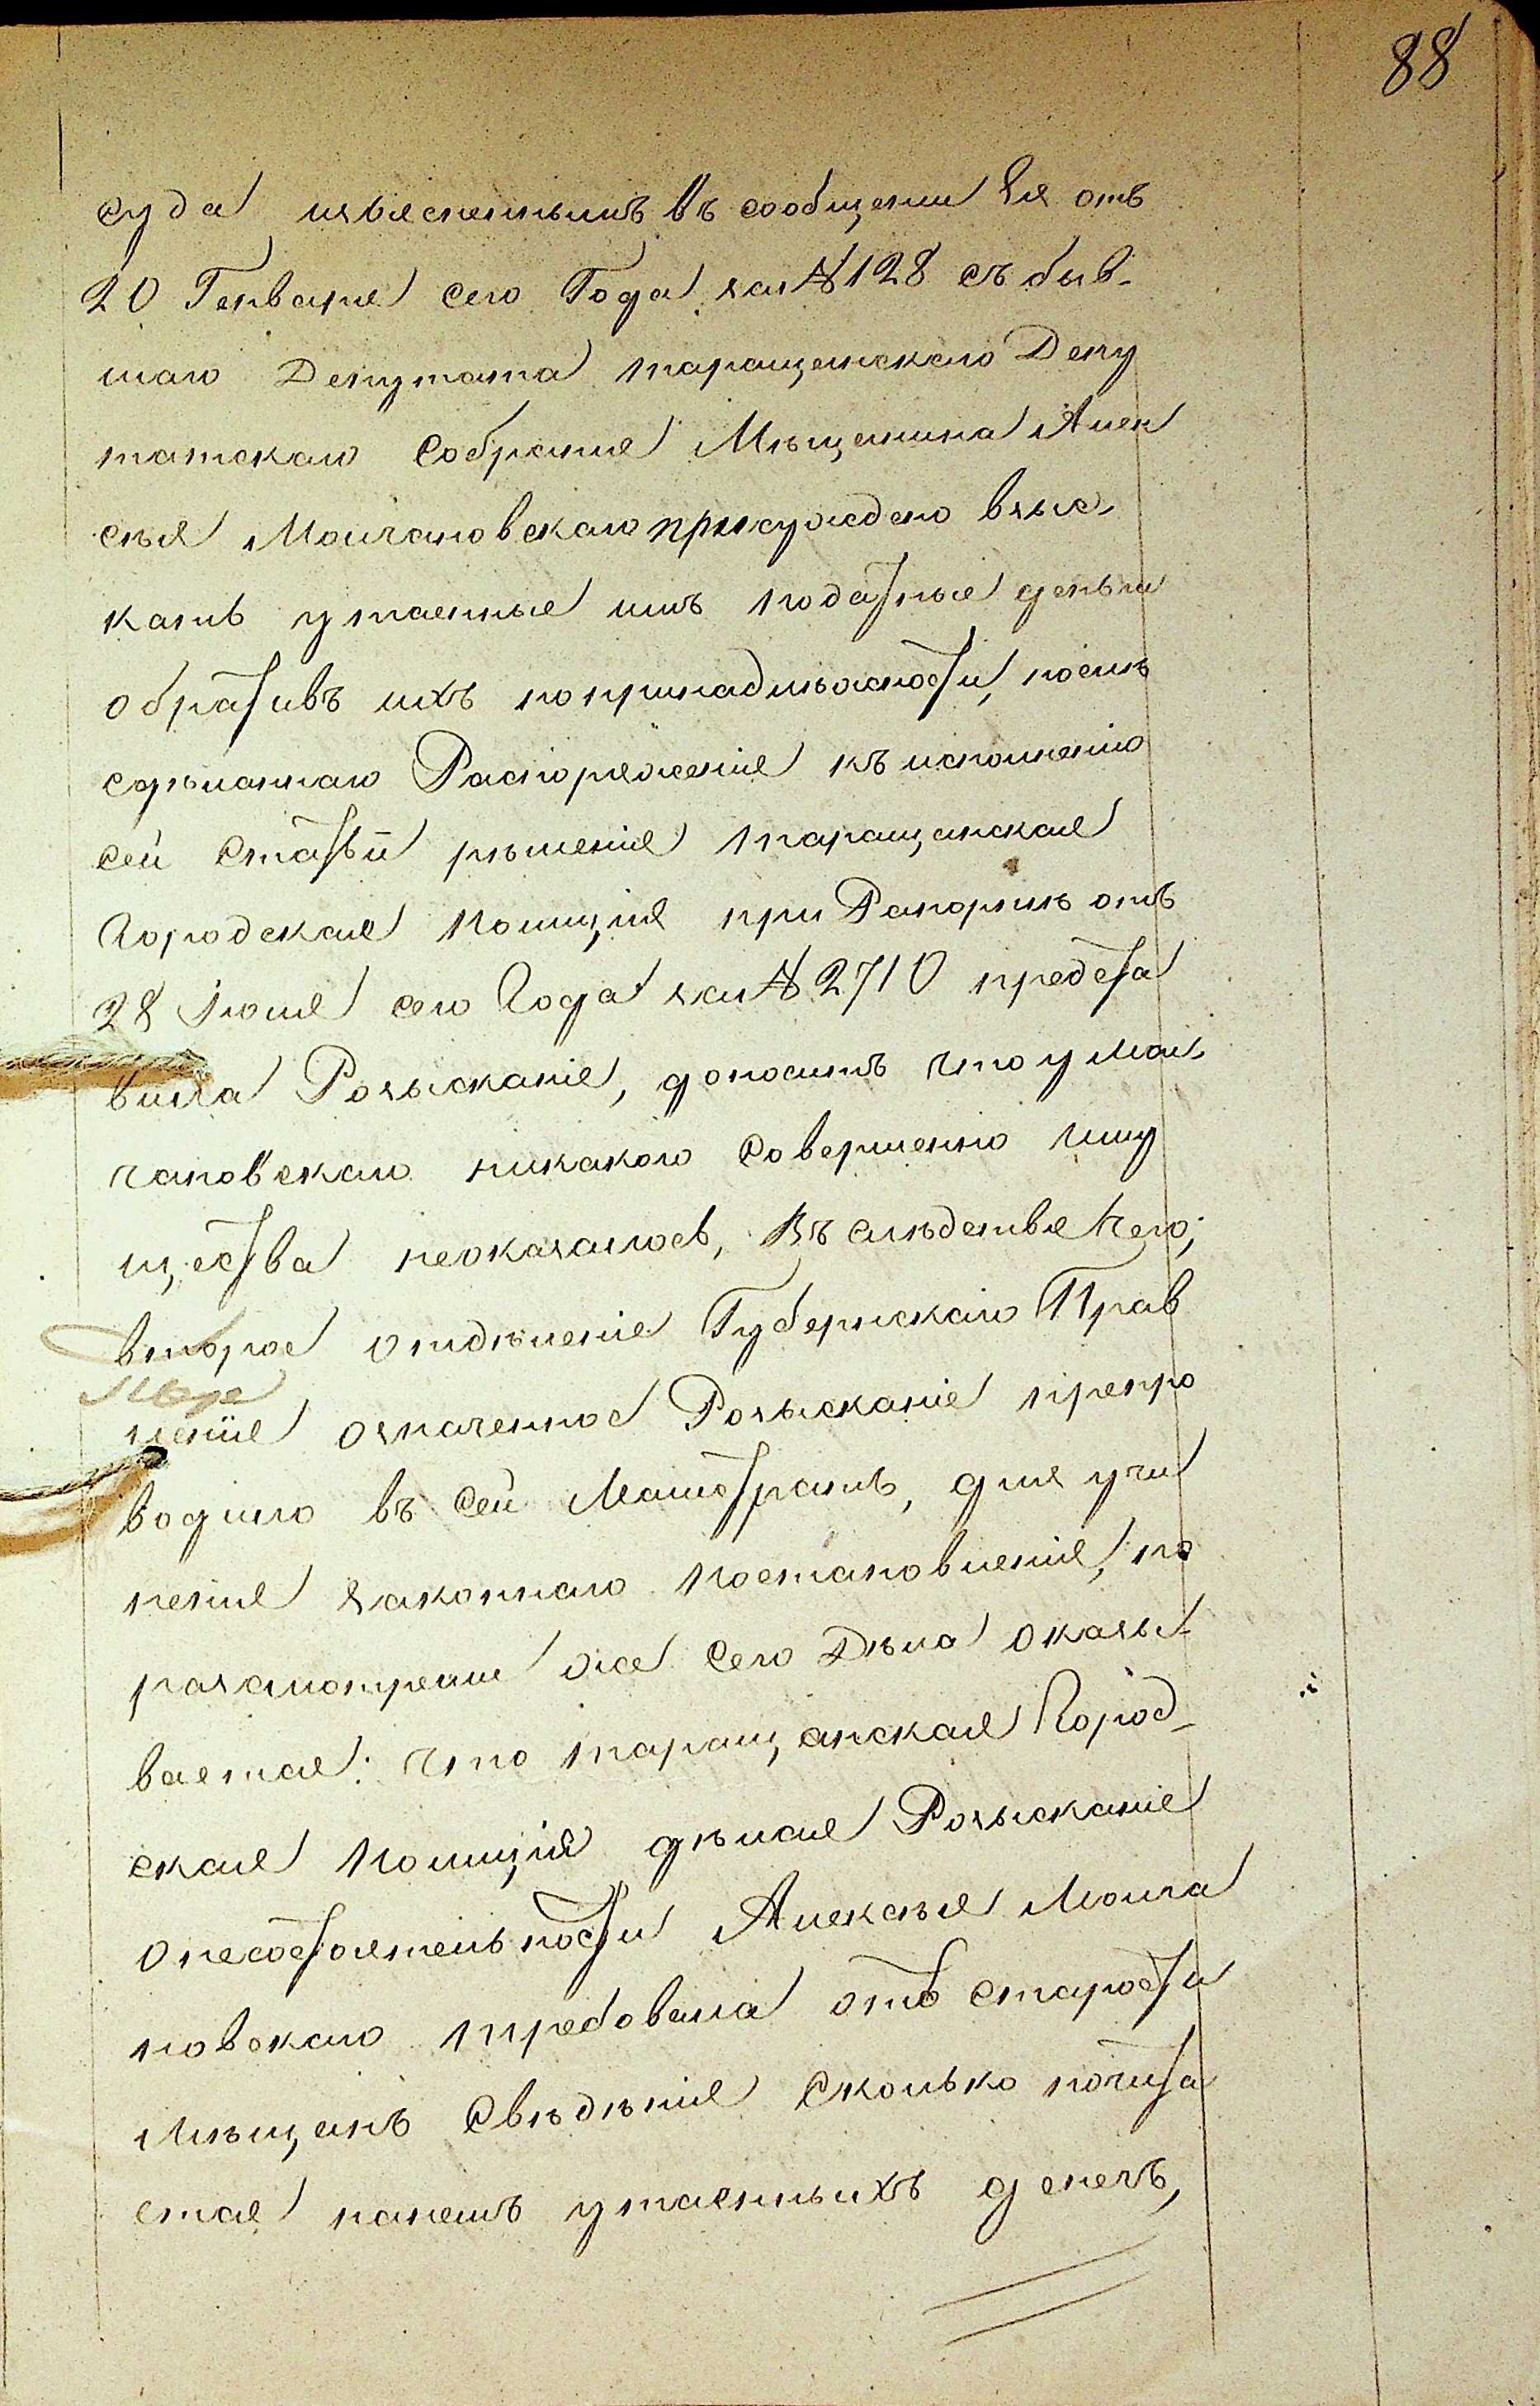 88
суда изъясненнымъ въ сообщении Ея отъ
20 Генваря сего Года за №128 съ быв-
шаго Депутата таращанскаго Депу
татскаго Собрания Мѣщанина Алек
сѣя Молчановскаго присуждено взыс-
кать утаенные имъ податные деньги
обративъ ихъ попринадлежности, посемъ
сдѣланнаго Распоряжения къ исполненію
сей Статьи рѣшенія таращанская
Городская Полиция при Рапортѣ отъ
28 Іюня сего Года за №2710 предста
вила Розысканіе, доноситъ что у Мол-
чановскаго никакого Совершенно Иму
щества неоказалось, Въ слѣдствие Чего;
второе отдѣленіе Губернскаго Прав
ленія означенное Розысканіе препро
водило въ Сей Магистратъ, для учи
ненія законнаго Постановленія, по
разсмотрении же Сего Дѣла оказы-
вается: что таращанская Город-
ская Полиція дѣлая Розысканіе
онесостоятельности Алексѣя Молча
новскаго требовала отъ Старосты
Мѣщанъ Свѣдѣнія Сколько почита
ется нанемъ утаенныхъ денегъ,